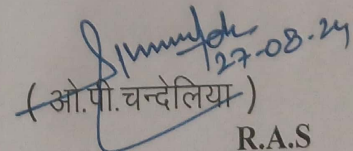 27-08-24
(ओ.पी.चन्देलिया)
R.A.S